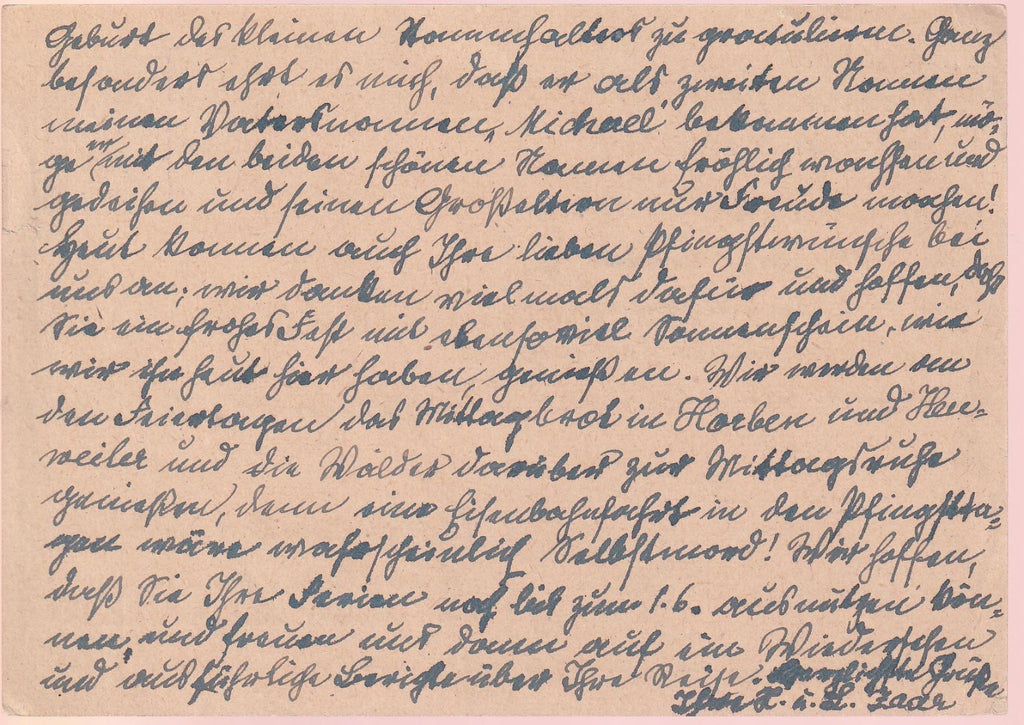 Geburt des kleinen Stammhalters zu gratulieren. Ganz
besonders ehrt es mich, daß er als zweiten Namen
meinen Vatersnamen „Michael“ bekommen hat, mö-
ge er mit den beiden schönen Namen fröhlich wachsen und
gedeihen und seinen Großeltern nur Freude machen!
Heut kamen auch Ihre lieben Pfingstwünsche bei
uns an; wir danken vielmals dafür und hoffen, daß
Sie ein frohes Fest mit ebensoviel Sonnenschein, wie
wir ihn heut hier haben, genießen. Wir werden an
den Feiertagen das Mittagbrot in Horben und
weiler und die Wälder darüber zur Mittagsruhe
genießen, denn eine Eisenbahnfahrt in den Pfingstta-
gen wäre wahrscheinlich Selbstmord! Wir hoffen,
daß Sie Ihre Ferien noch bis zum 1.6. ausnutzen kön-
nen, und freuen uns dann auf ein Wiedersehen
und ausführliche Berichte über Ihre Reise. Herzlichste Grüße
Ihre K. u. H.